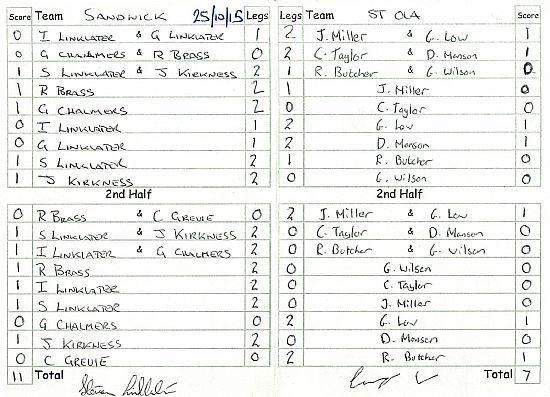 Score Team SANDWICK 25/10/15 Legs Team ST OLA Score
0 I LINKLATER & G LINKLATER 1 2 J. Miller & G. Low 1
0 G CHALMERS & R BRASS 0 2 C. Taylor & D. Monson 1
1 S LINKLATER & J KIRKNESS 2 1 R. Butcher & G. Wilson 0
1 R BRASS 2 1 J. Miller 0
1 G CHALMERS 2 0 C. Taylor 0
0 I LINKLATER 1 2 G. Low 1
0 G LINKLATER 1 2 D. Monson 1
1 S LINKLATER 2 1 R. Butcher 0
1 J KIRKNESS 2 0 G. Wilson 0
2nd Half 2nd Half
0 R BRASS & C GREUIE 0 2 J. Miller & G. Low 1
1 S LINKLATER & J KIRKNESS 2 0 C. Taylor & D. Monson 0
1 I LINKLATER & G CHALMERS 2 0 R. Butcher & G. Wilson 0
1 R BRASS 2 0 G. Wilson 0
1 I LINKLATER 2 0 C. Taylor 0
1 S LINKLATER 2 0 J. Miller 0
0 G CHALMERS 0 2 G. Low 1
1 J KIRKNESS 2 0 D. Monson 0
0 C GREUIE 0 2 R. Butcher 1
11 Total Total 7